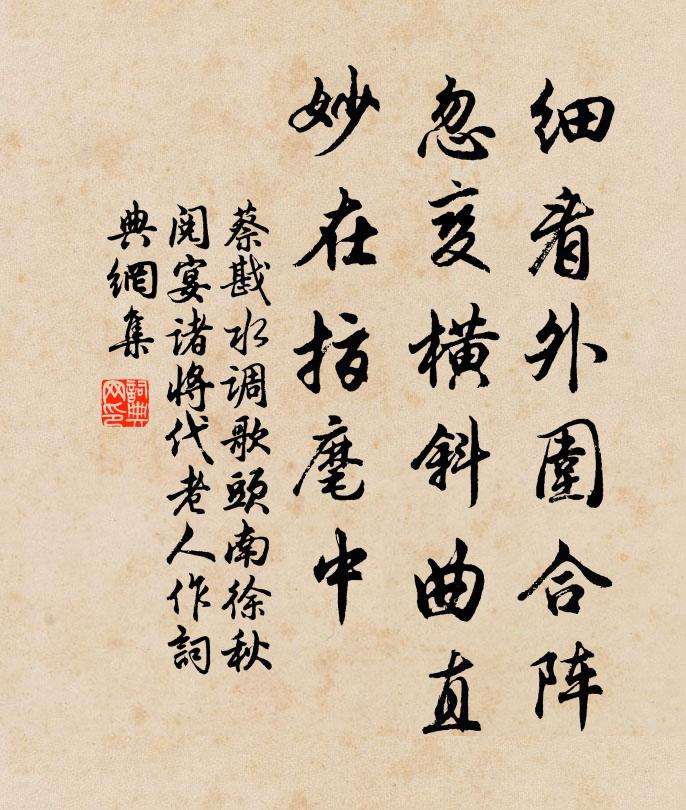 细看外圍合阵
忽变橫斜曲直
妙在指麾中
蔡戡水调歌頭南徐秋
阅宴诸将代老人作詞
典網集
詞典网印